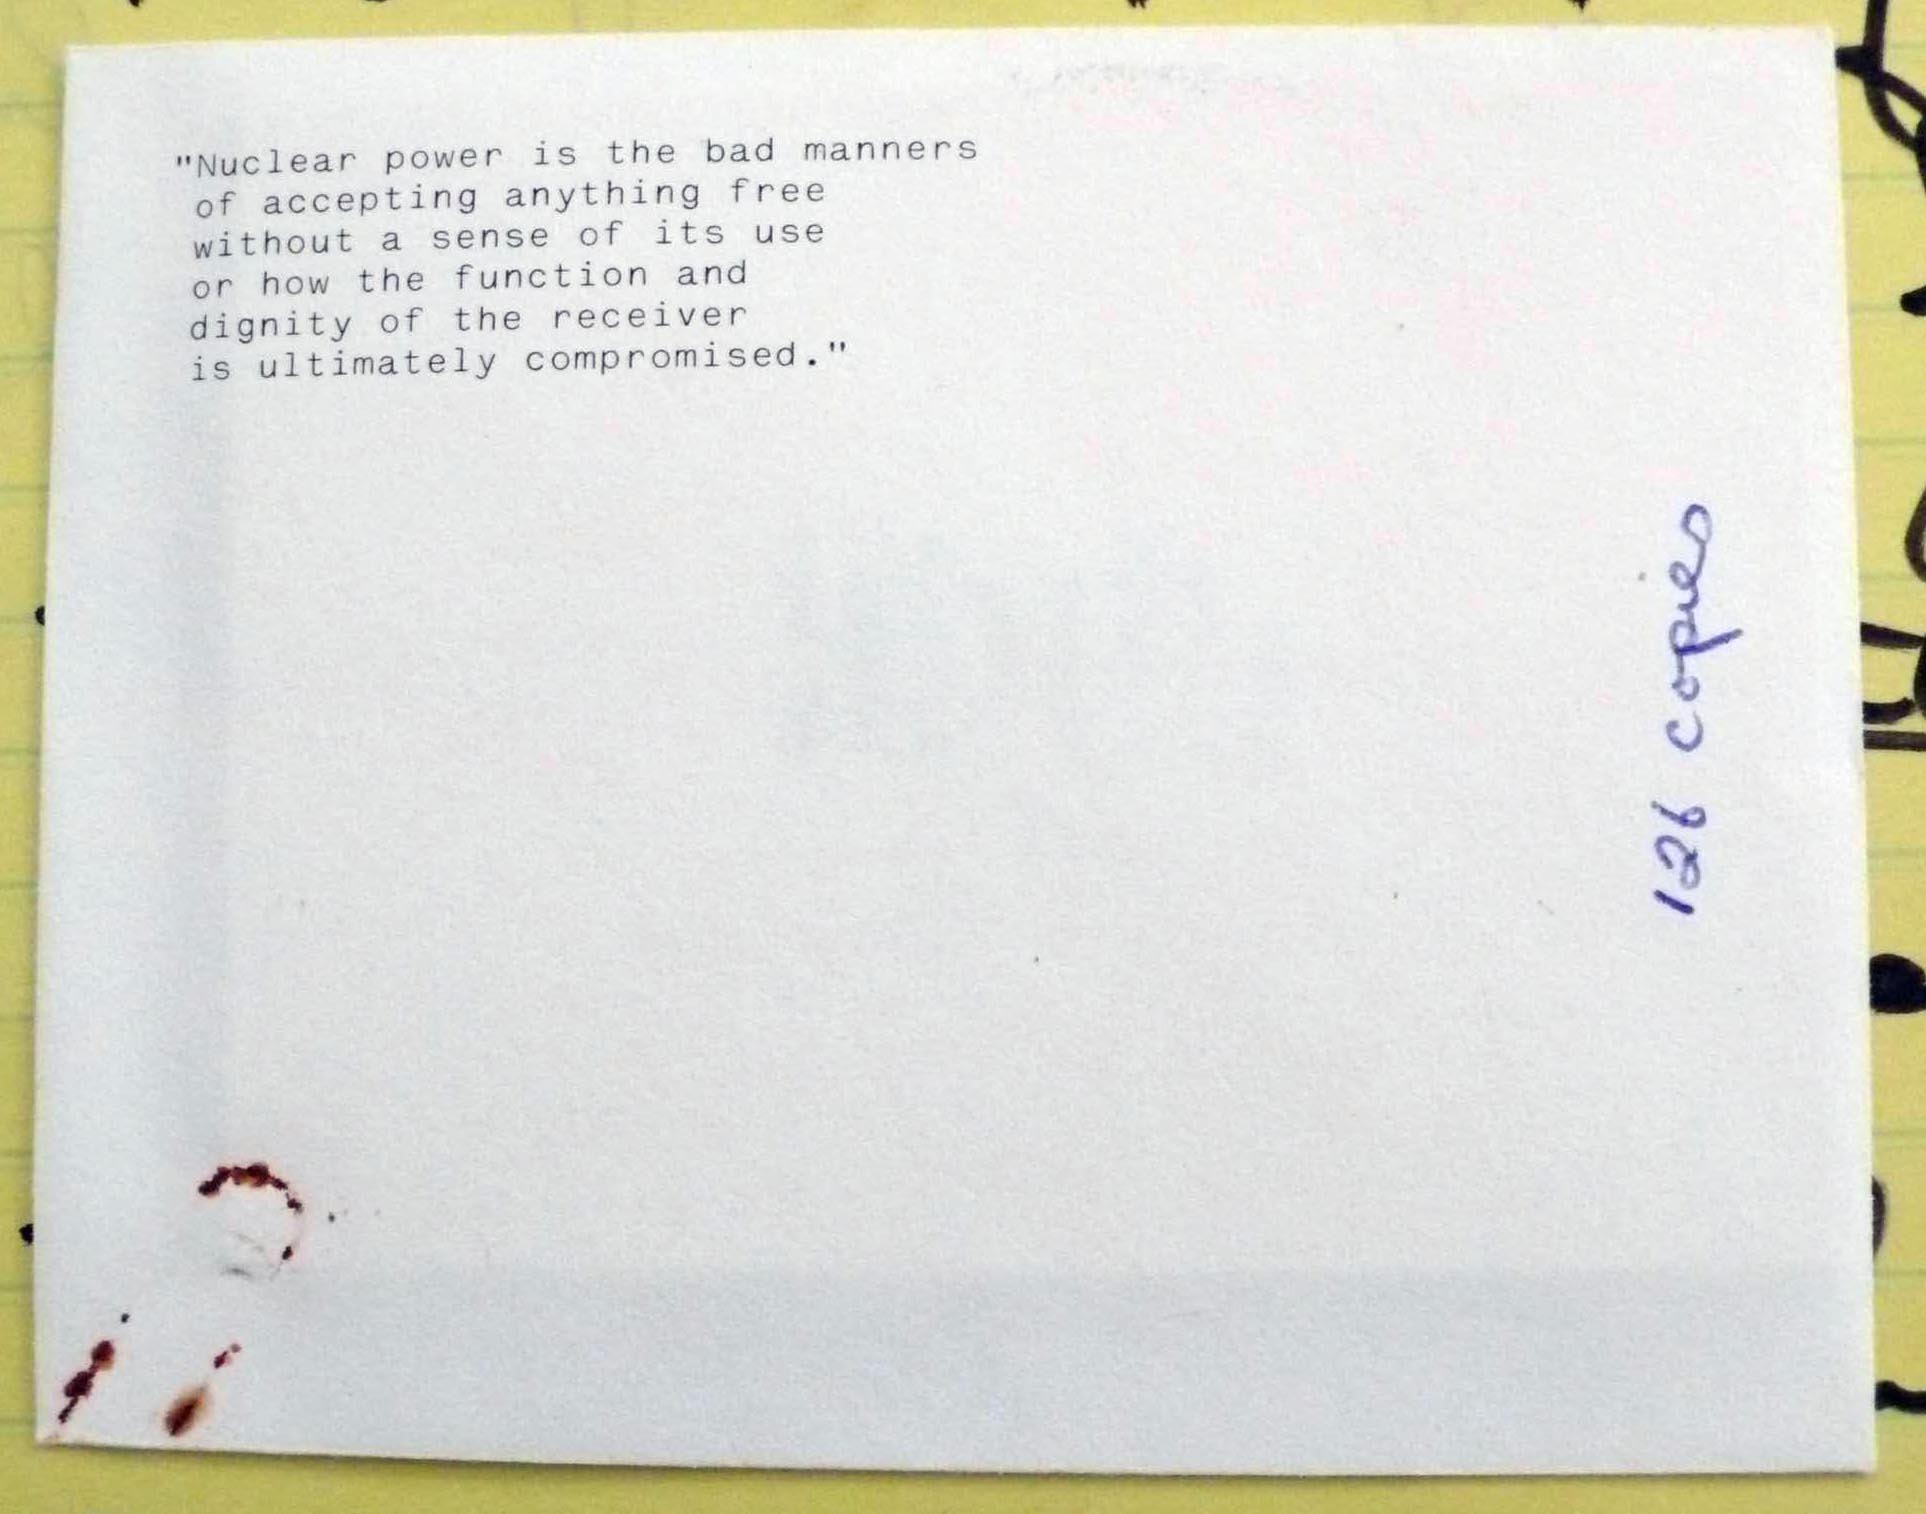 "Nuclear power is the bad manners
of accepting anything free
without a sense of its use
or how the function and
dignity of the receiver
is ultimately compromised."
126 copies